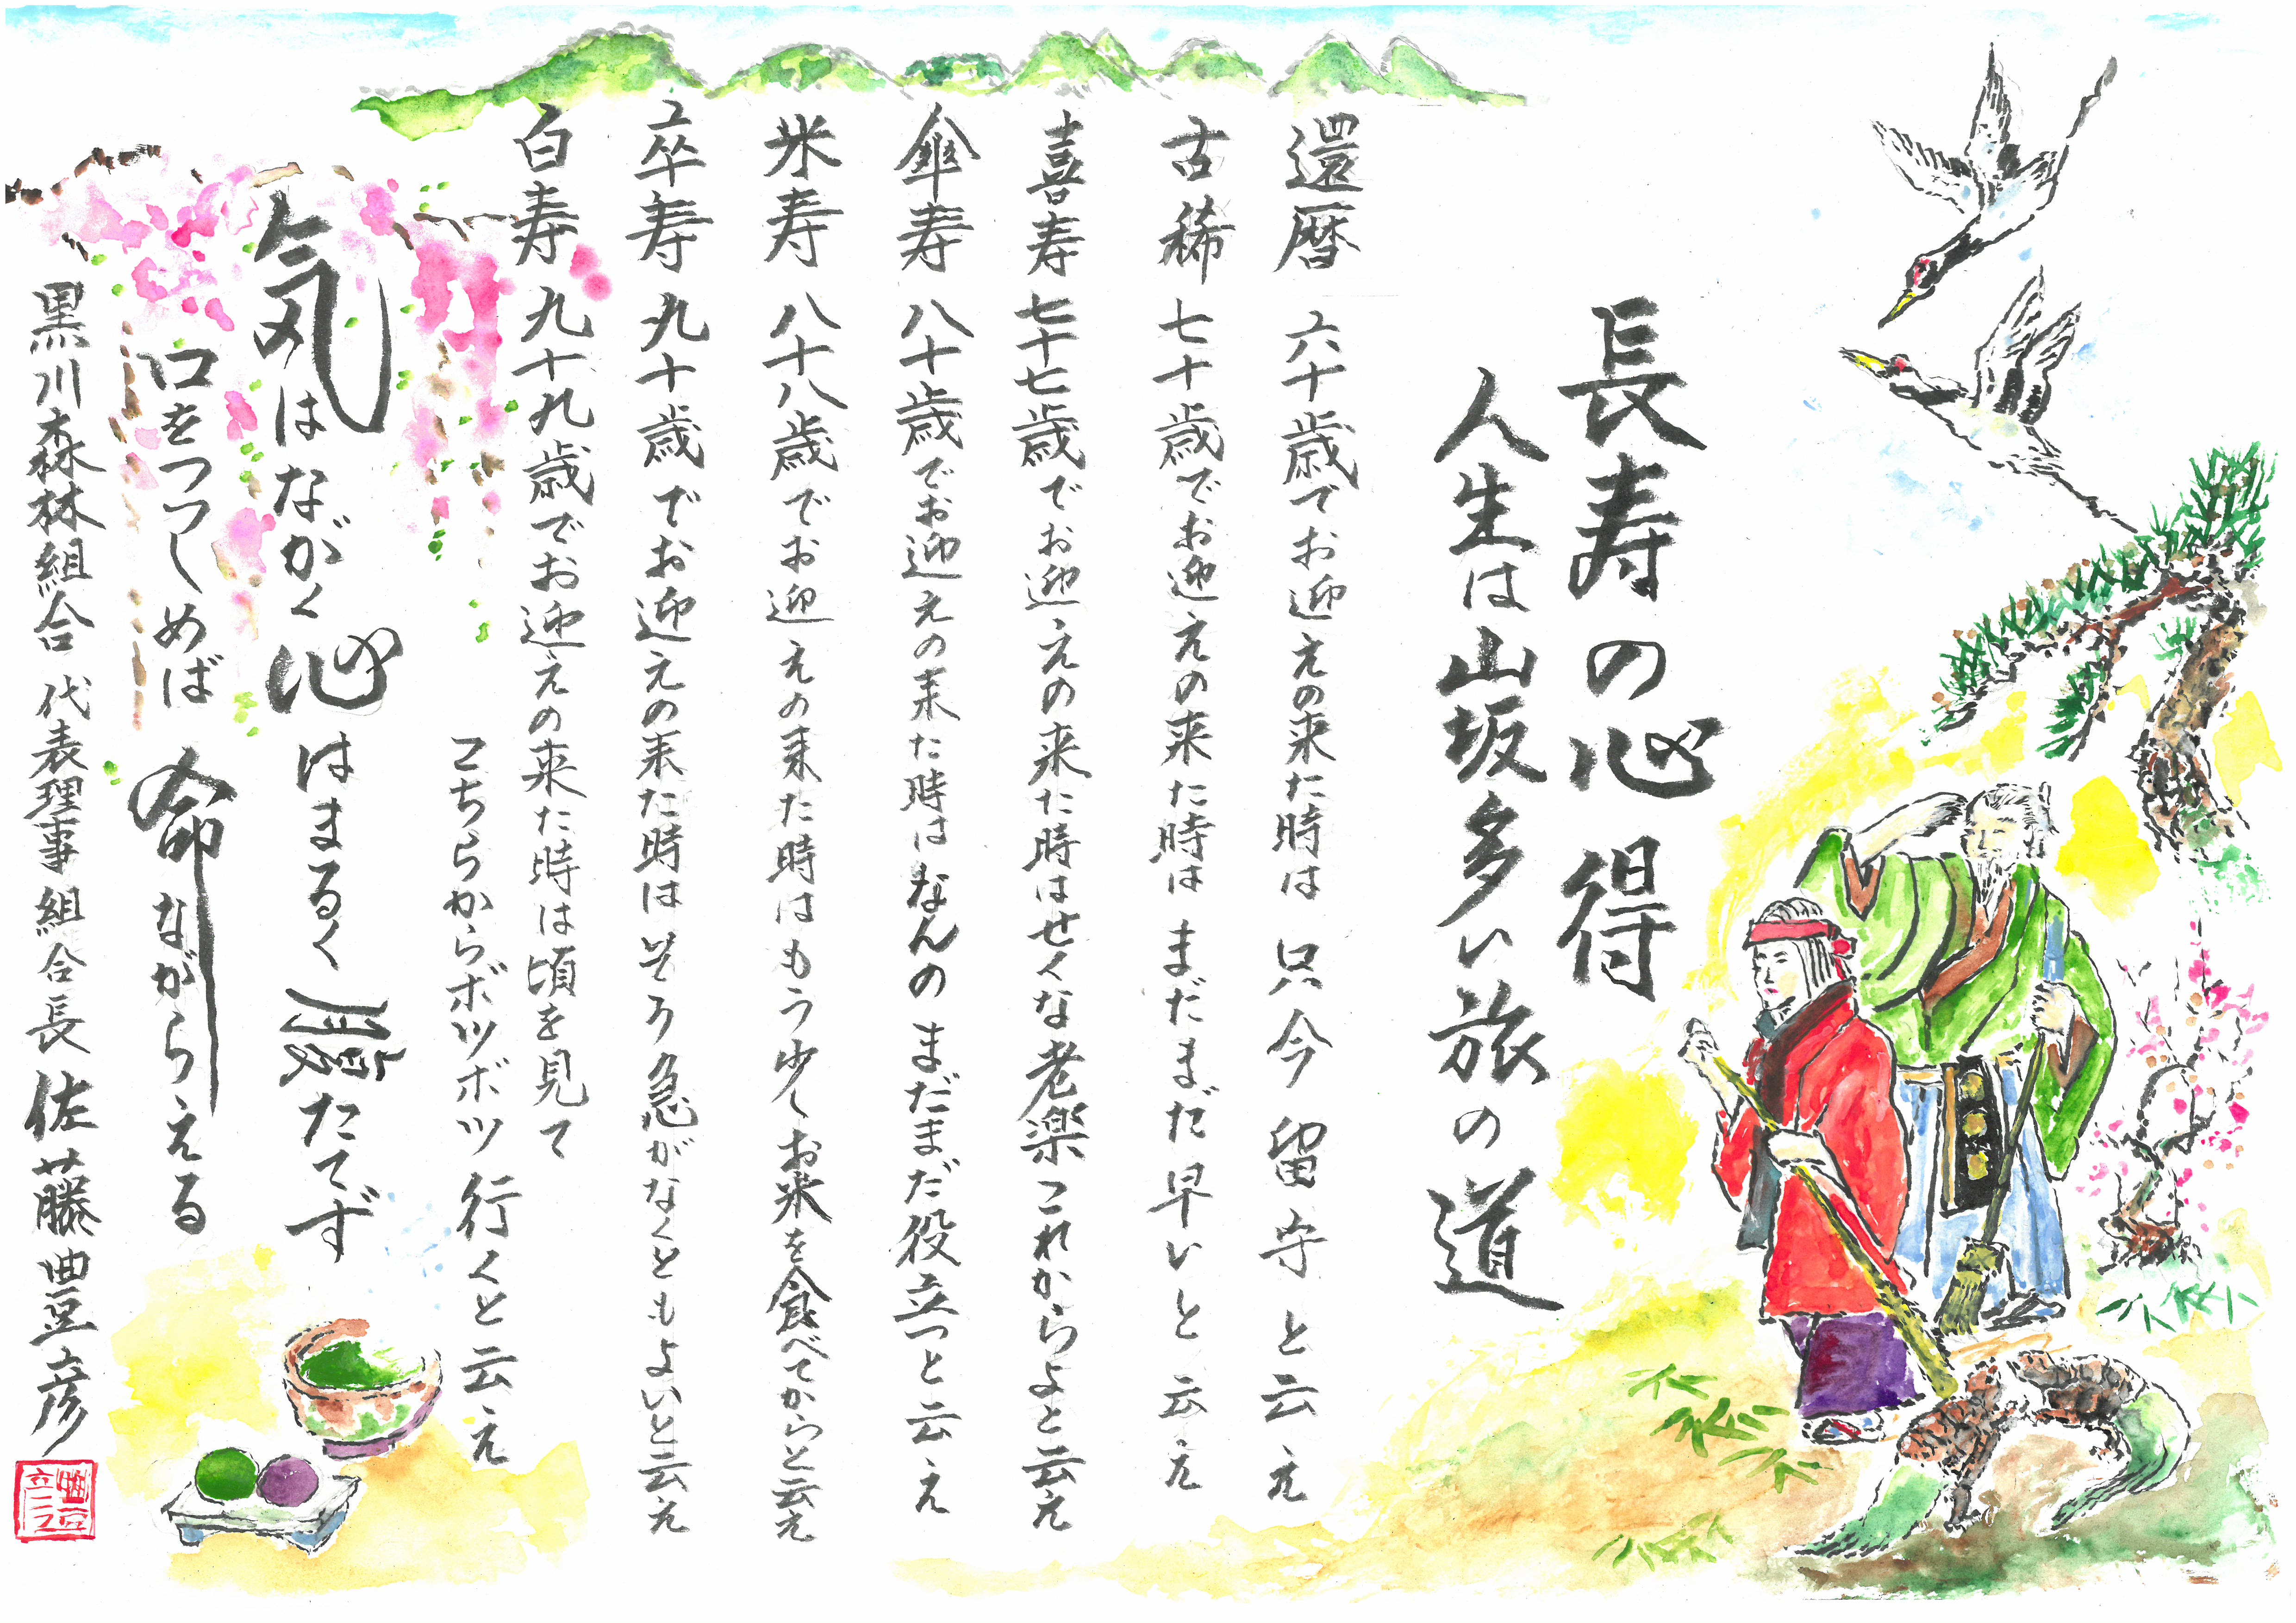 長寿の心得
人生は山坂多い旅の道
還暦 六十歳でお迎えの来た時は 只今留守と云え
古稀 七十歳でお迎えの来た時は まだまだ早いと云え
喜寿 七十七歳でお迎えの来た時はせくな老楽これからよと云え
傘寿 八十歳でお迎えの来た時はなんの まだまだ役立つと云え
米寿 八十八歳でお迎えの来た時はもう少しお米を食べてからと云え
卒寿 九十歳でお迎えの来た時は そう急がなくともよいと云え
白寿 九十九歳でお迎えの来た時は頃を見て
こちらからボツボツ行くと云え
気はながく 心はまるく 腹たてず
口をつつしめば 命ながらえる
黒川森林組合 代表理事組合長 佐藤豊彦